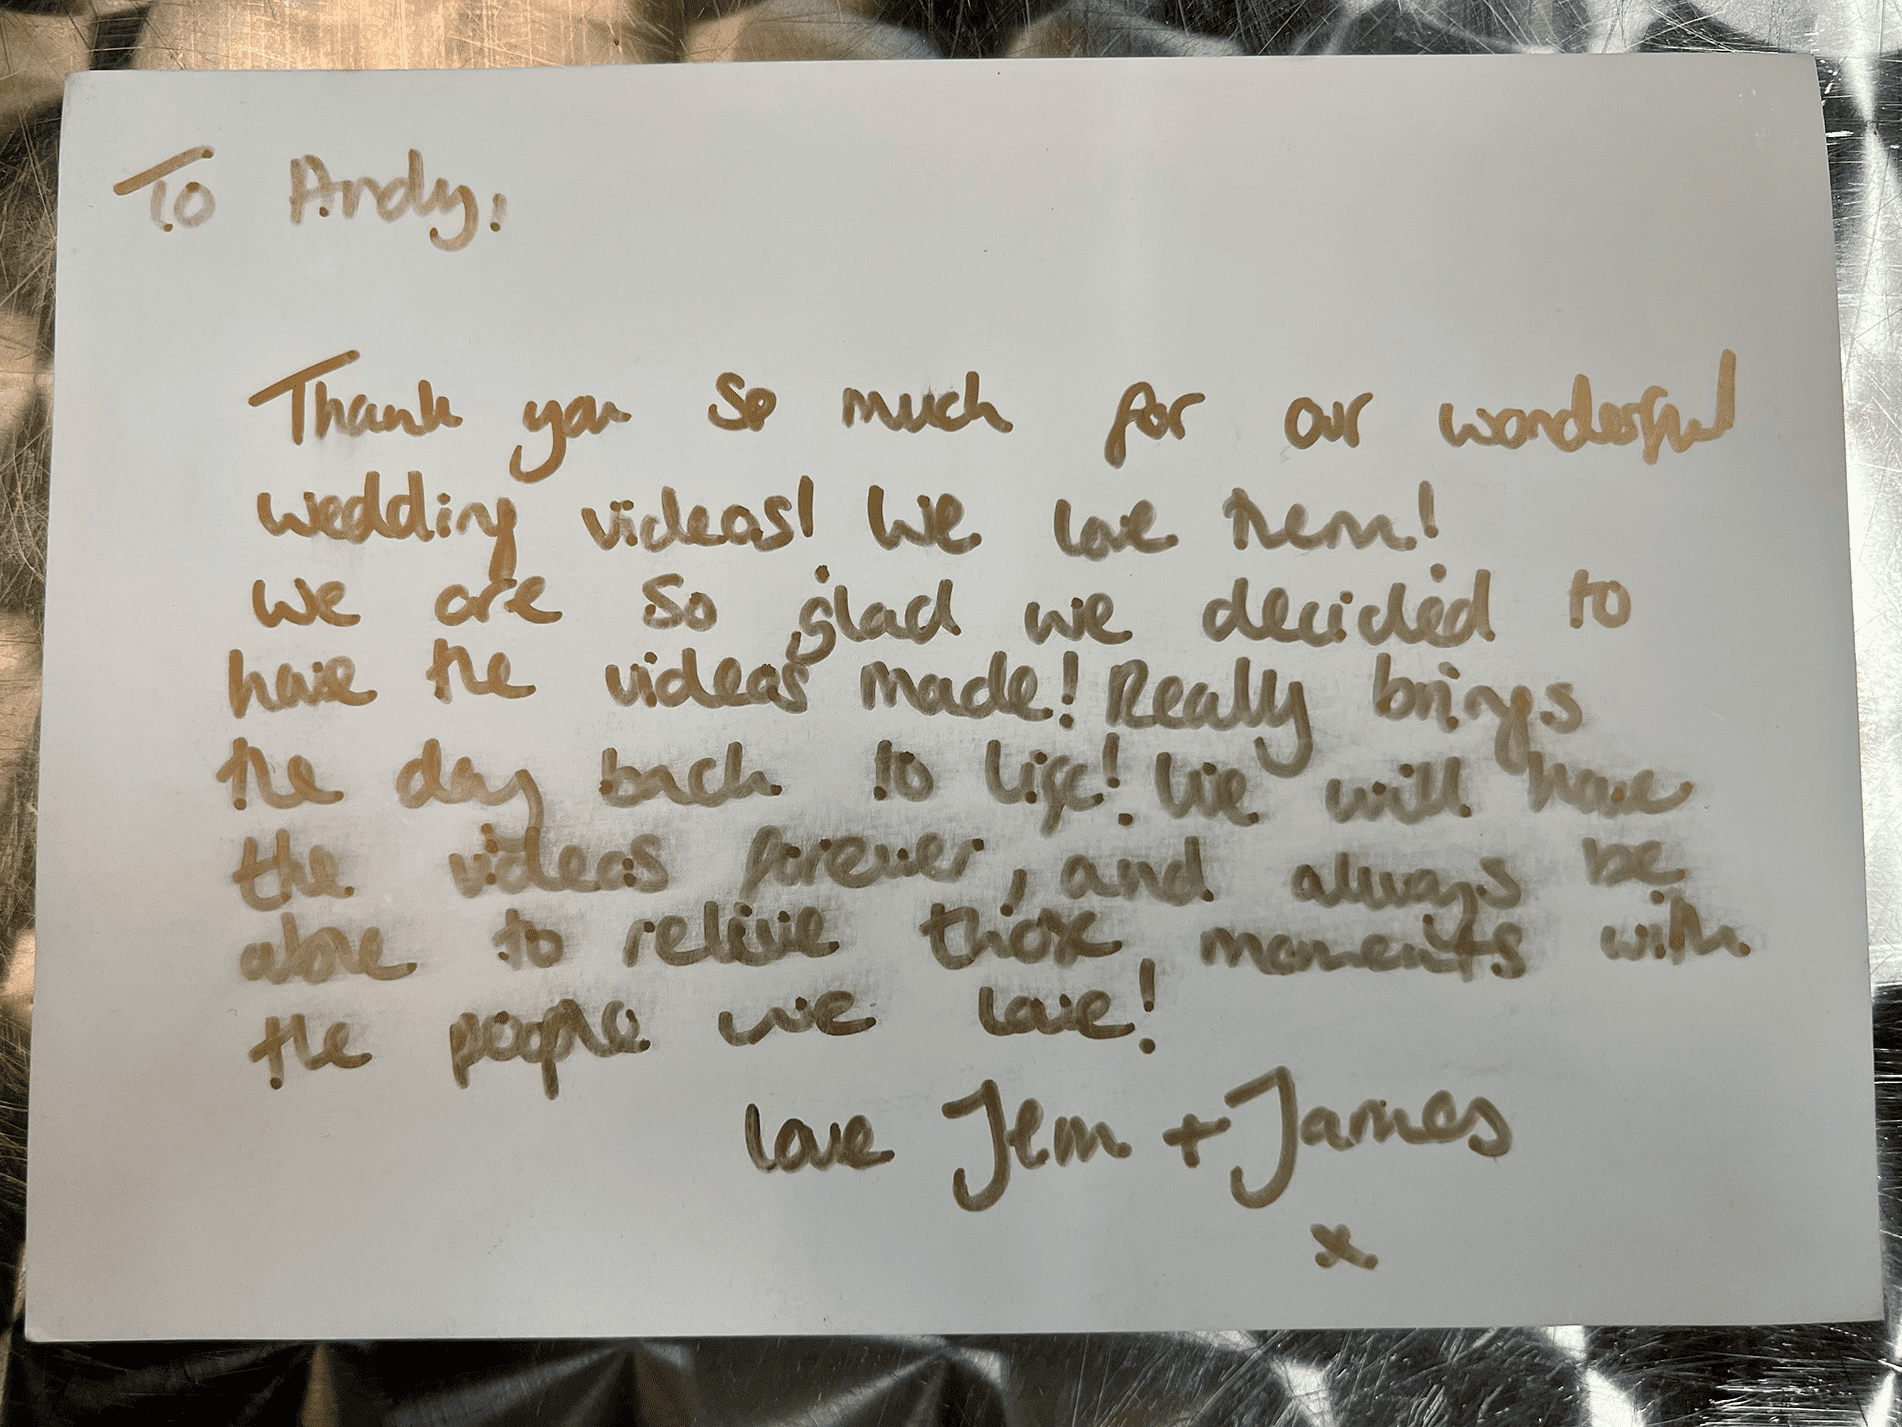 To Andy,
Thank you so much for our wonderful
wedding videos! We love them!
We are so glad we decided to
have the videos made! Really brings
the day back to life! We will have
the videos forever, and always be
able to relive those moments with
the people we love!
love Jem + James
x